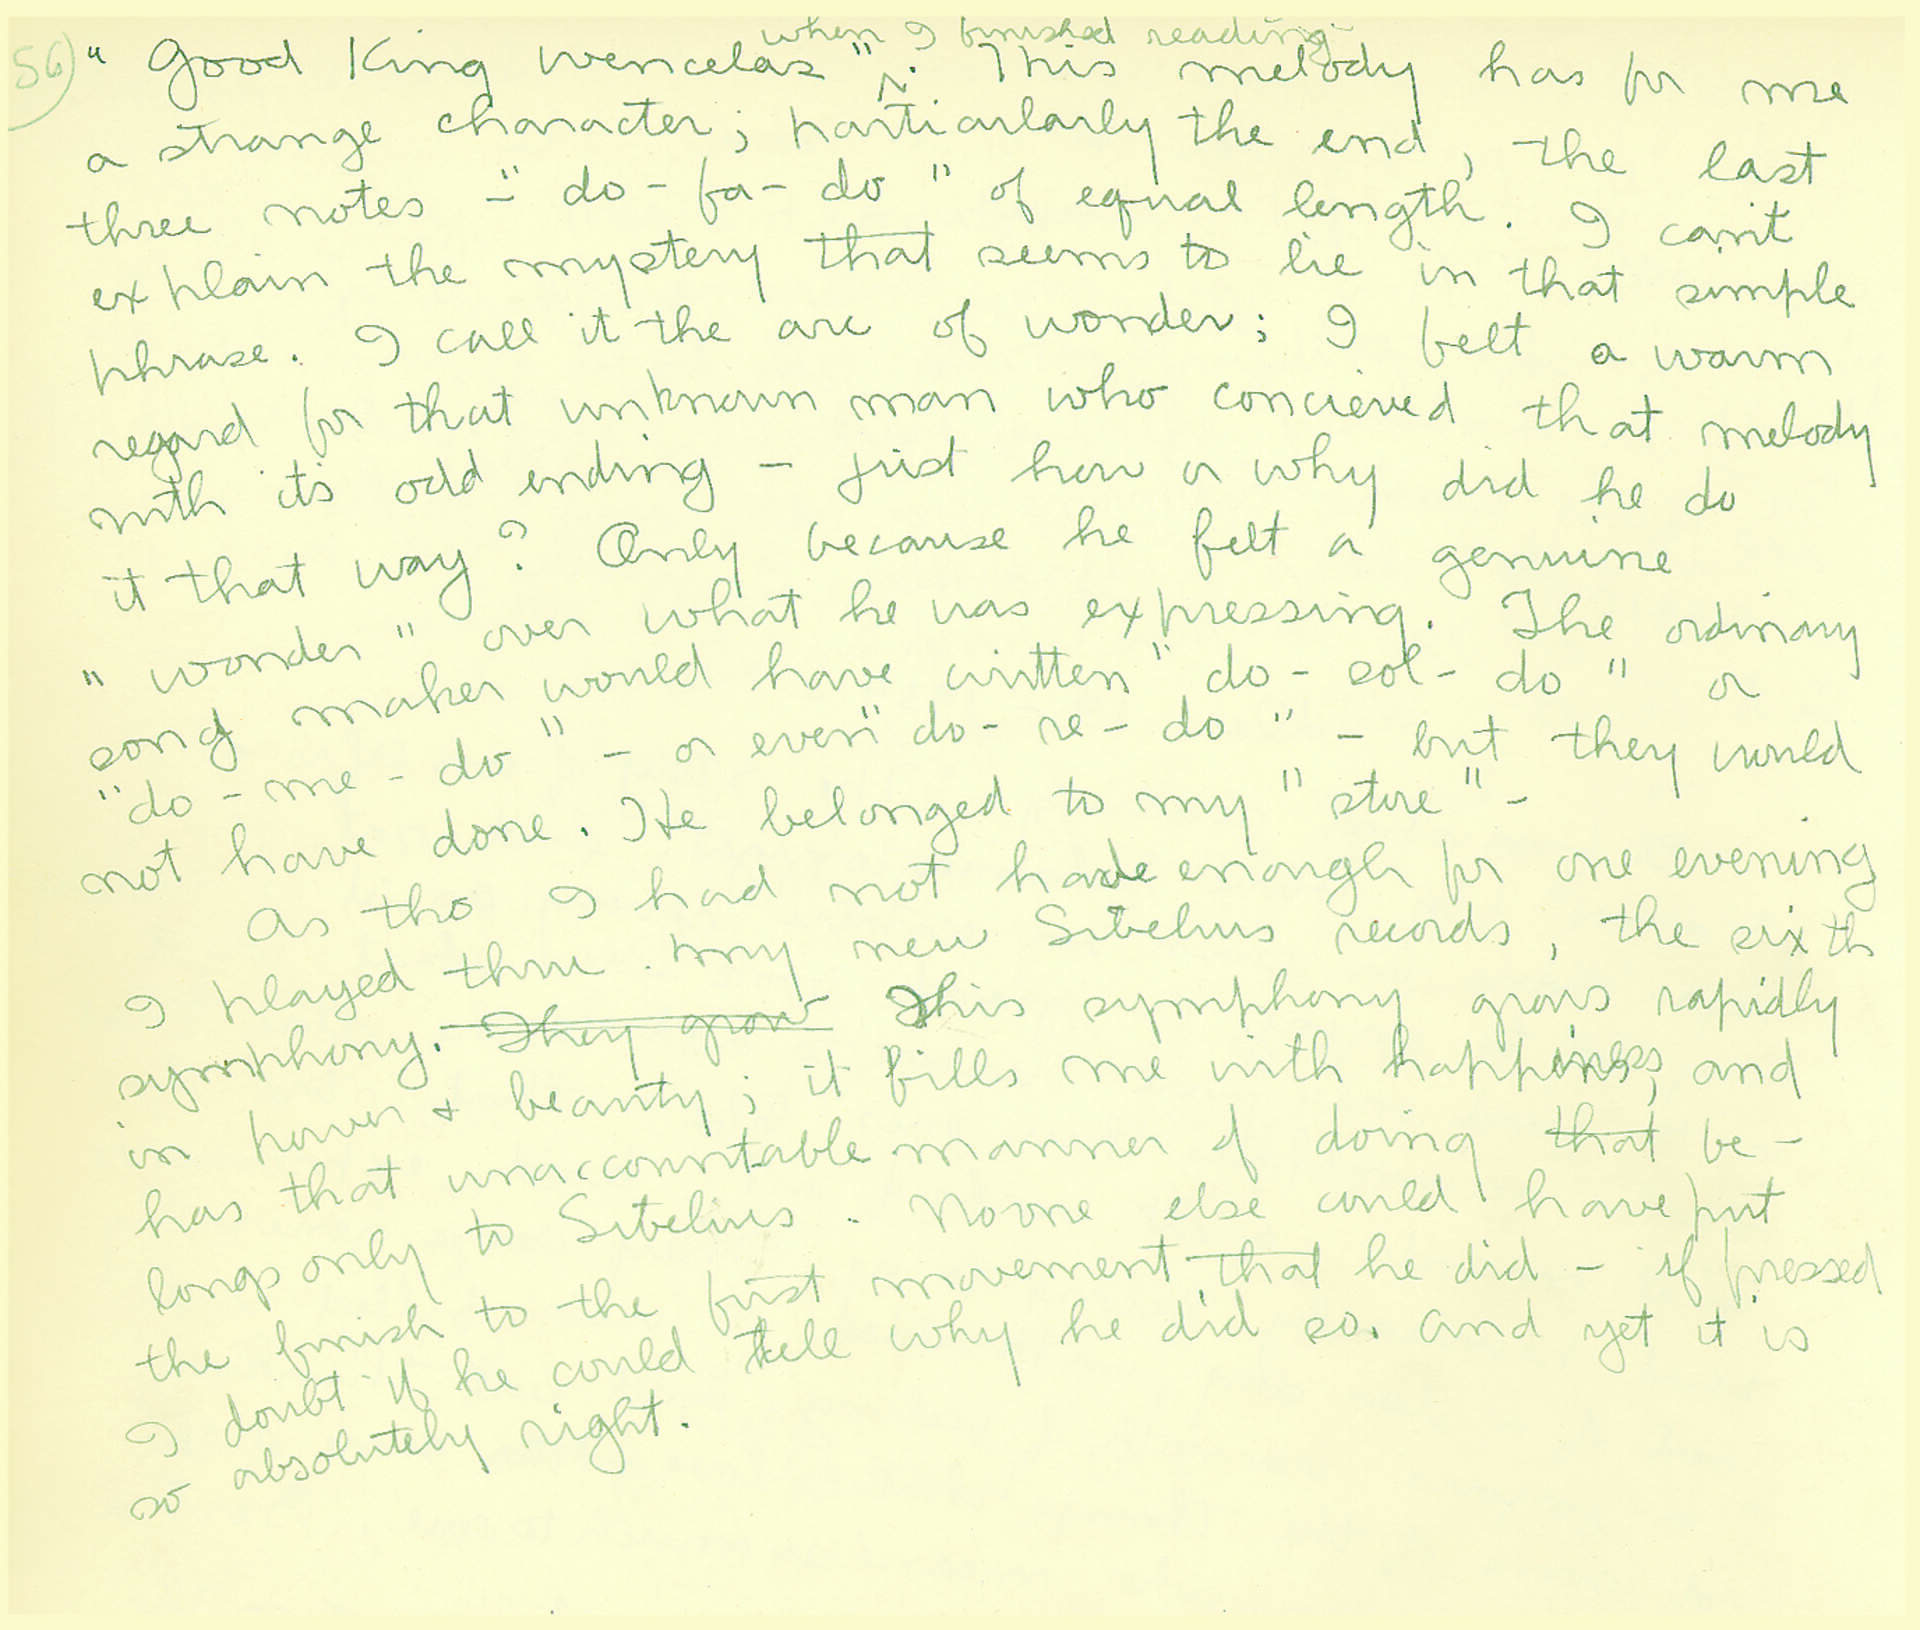 56
when I finished reading
" Good King Wencelas " ^. This melody has for me
a strange character; particularly the end, the last
three notes - " do - fa - do " of equal length. I can't
explain the mystery that seems to lie in that simple
phrase. I call it the arc of wonder; I felt a warm
regard for that unknown man who concieved that melody
with it's odd ending - just how or why did he do
it that way? Only because he felt a genuine
" wonder " over what he was expressing. The ordinary
song maker would have written " do - sol - do " or
" do - me - do " - or even " do - re - do " - but they would
not have done. He belonged to my " store " -
As tho I had not had enough for one evening
I played thru my new Sibelius records, the sixth
symphony. They grow This symphony grows rapidly
in power + beauty; it fills me with happiness, and
has that unaccountable manner of doing that be-
longs only to Sibelius. No one else could have put
the finish to the first movement that he did - if pressed
I doubt if he could tell why he did so. And yet it is
so absolutely right.